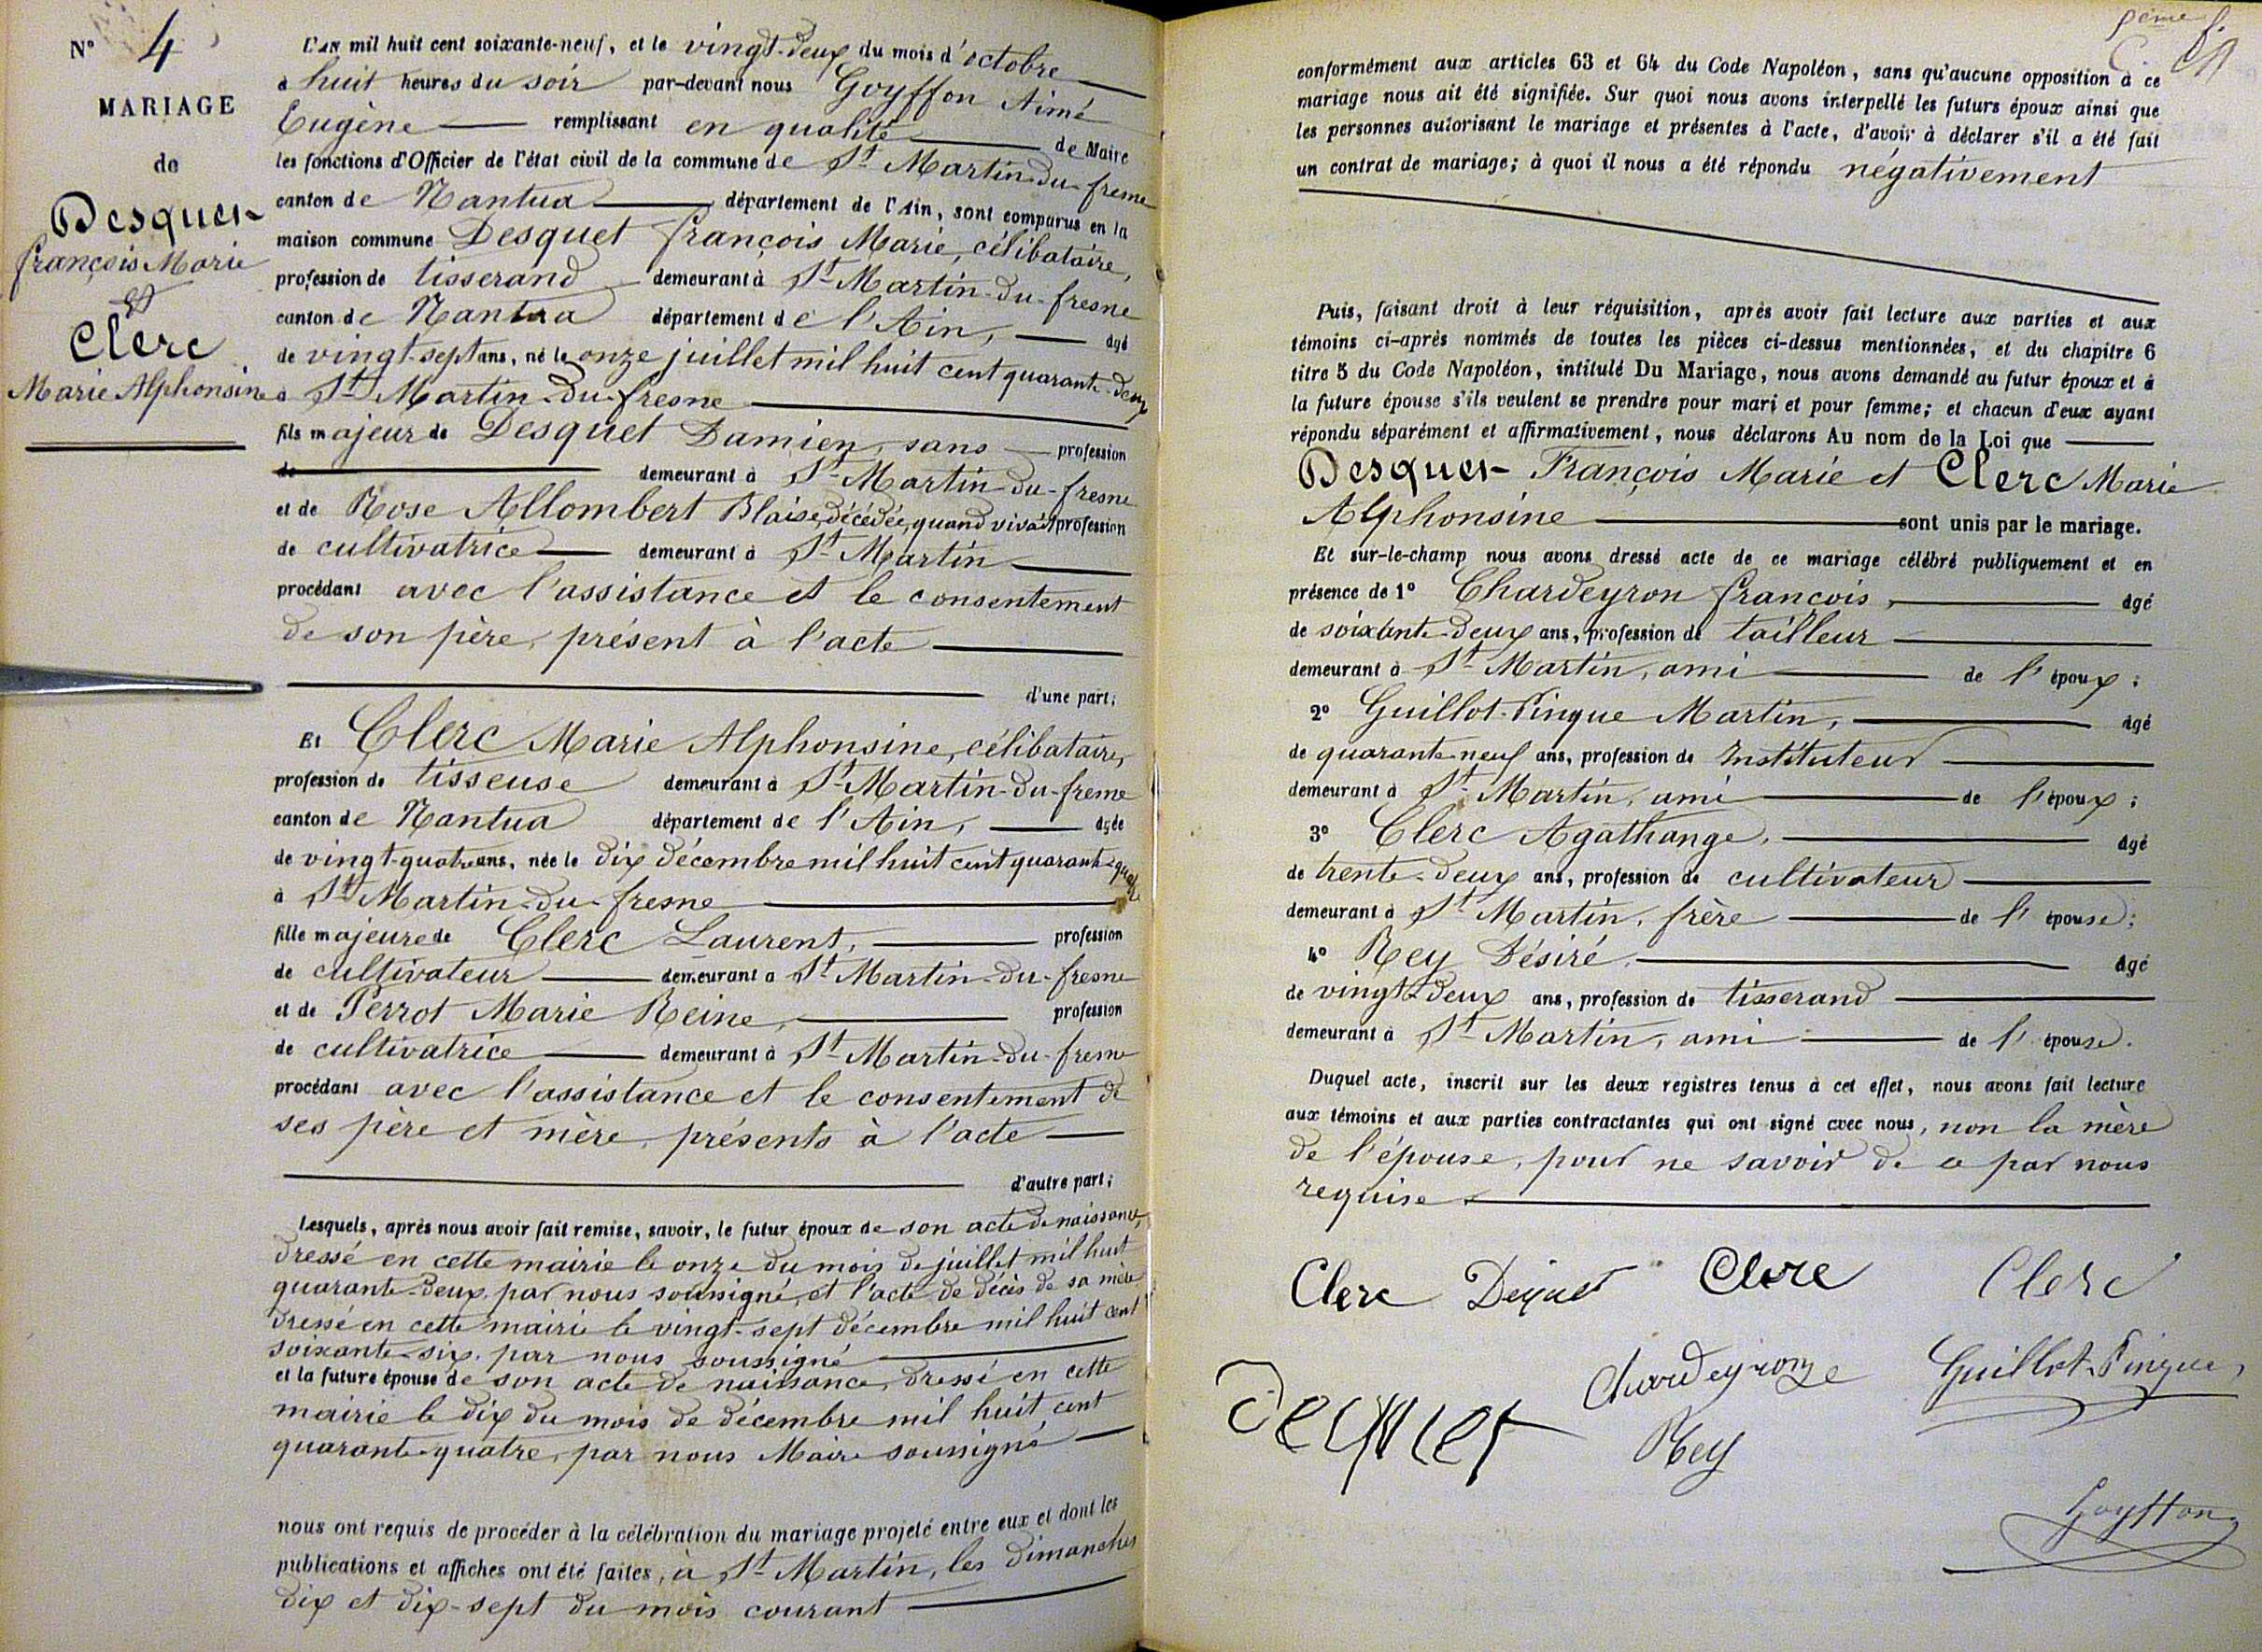 N° 4
MARIAGE
de
Desquet
françois Marie
et
Clerc
Marie Alphonsine
L'AN mil huit cent soixante-neuf, et le vingt-deux du mois d'octobre
à huit heures du soir par-devant nous Goyffon Aimé
Eugène remplissant en qualité de Maire
les fonctions d'Officier de l'état civil de la commune de St Martin-du-fresne
canton de Nantua département de l'Ain, sont comparus en la
maison commune Desquet françois Marie, célibataire,
profession de tisserand demeurant à St Martin-du-fresne
canton de Nantua département de l'Ain, âgé
de vingt-sept ans, né le onze juillet mil huit cent quarante-deux
à St Martin-du-fresne
fils majeur de Desquet Damien, sans profession
de demeurant à St Martin-du-fresne
et de Rose Allombert Blaise, décédée, quand vivait profession
de cultivatrice demeurant à St Martin
procédant avec l'assistance et le consentement
de son père, présent à l'acte
d'une part;
Et Clerc Marie Alphonsine, célibataire,
profession de tisseuse demeurant à St Martin-du-fresne
canton de Nantua département de l'Ain, âgée
de vingt-quatre ans, née le dix décembre mil huit cent quarante-quatre
à St Martin-du-fresne
fille majeure de Clerc Laurent, profession
de cultivateur demeurant à St Martin-du-fresne
et de Perrot Marie Reine, profession
de cultivatrice demeurant à St Martin-du-fresne
procédant avec l'assistance et le consentement de
ses père et mère, présents à l'acte
d'autre part;
Lesquels, après nous avoir fait remise, savoir, le futur époux de son acte de naissance,
dressé en cette mairie le onze du mois de juillet mil huit
quarante-deux, par nous soussigné, et l'acte de décès de sa mère
dressé en cette mairie le vingt-sept décembre mil huit cent
soixante-six, par nous soussigné
et la future épouse de son acte de naissance, dressé en cette
mairie le dix du mois de décembre mil huit cent
quarante-quatre, par nous Maire soussigné
nous ont requis de procéder à la célébration du mariage projeté entre eux et dont les
publications et affiches ont été faites, à St Martin, les dimanches
dix et dix-sept du mois courant
conformément aux articles 63 et 64 du Code Napoléon, sans qu'aucune opposition à ce
mariage nous ait été signifiée. Sur quoi nous avons interpellé les futurs époux ainsi que
les personnes autorisant le mariage et présentes à l'acte, d'avoir à déclarer s'il a été fait
un contrat de mariage; à quoi il nous a été répondu négativement
Puis, faisant droit à leur réquisition, après avoir fait lecture aux parties et aux
témoins ci-après nommés de toutes les pièces ci-dessus mentionnées, et du chapitre 6
titre 5 du Code Napoléon, intitulé Du Mariage, nous avons demandé au futur époux et à
la future épouse s'ils veulent se prendre pour mari et pour femme; et chacun d'eux ayant
répondu séparément et affirmativement, nous déclarons Au nom de la Loi que
Desquet François Marie et Clerc Marie
Alphonsine sont unis par le mariage.
Et sur-le-champ nous avons dressé acte de ce mariage célébré publiquement et en
présence de 1° Chardeyron françois, âgé
de soixante-deux ans, profession de tailleur
demeurant à St Martin, ami de l'époux;
2° Guillot-Pinque Martin, âgé
de quarante-neuf ans, profession de Instituteur
demeurant à St Martin, ami de l'époux;
3° Clerc Agathange, âgé
de trente-deux ans, profession de cultivateur
demeurant à St Martin, frère de l'épouse;
4° Rey Désiré, âgé
de vingt-deux ans, profession de tisserand
demeurant à St Martin, ami de l'épouse.
Duquel acte, inscrit sur les deux registres tenus à cet effet, nous avons fait lecture
aux témoins et aux parties contractantes qui ont signé avec nous, non la mère
de l'épouse, pour ne savoir de ce par nous
requise
Clerc Dequet Clerc Clerc
Dequet Chardeyronze Guillot-Pinque,
Rey
Goyffon